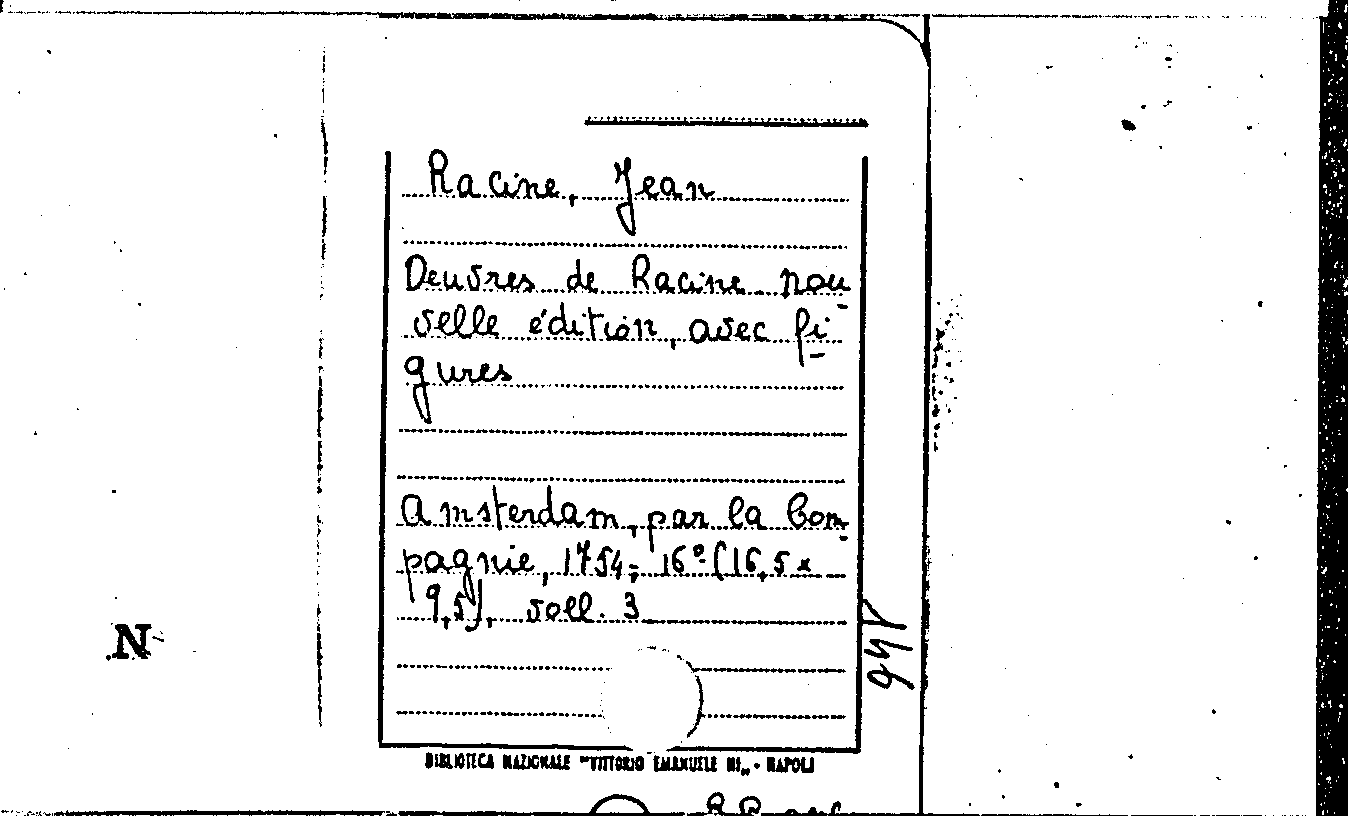 Racine, Jean
Oeuvres de Racine nou-
velle édition, avec fi-
gures
Amsterdam, par la Com-
pagnie, 1754; 16° (16,5 x
9,5), voll. 3
N
BIBLIOTECA NAZIONALE "VITTORIO EMANUELE III„ - NAPOLI